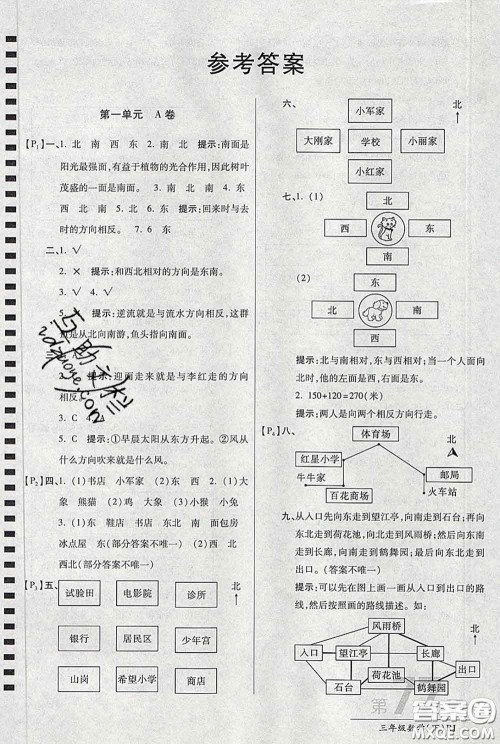 参考答案
第一单元 A卷
【P1】一、1. 北 南 西 东 2. 南 北 提示:南面是
阳光最强面,有益于植物的光合作用,因此树叶
茂盛的一面是南面。 3. 南 北 南 4. 东
西 北 南 5. 北 6. 东 提示:回来时与去
时的方向相反。 7. 6 东
二、1. √
2. × 提示:和西北相对的方向是东南。
3. √ 4. √
5. 提示:逆流就是与流水方向相反,这群
就是从北向南游,鱼头指向南方。
提示:迎面走来就是与李红走的方向
3. C 4.
5. C 提示:①早晨太阳从东方升起。②风从
什么方向吹来就是什么风。
【P2】四、1. (1)书店 小军家 (2)西 东 2. (1)大
象 熊猫 (2)鸡 大象 (3)小猴 小兔
3. (1)东 鞋店 书店 东北 南 面包房
冰点屋 东(部分答案不唯一) (2)西 北
西 北(部分答案不唯一)
【P3】五、
北
试验田 电影院 诊所
银行 居民区 少年宫
山岗 希望小学 商场
六、
北
小军家
大刚家 学校 小丽家
小红家
七、1. (1)
北
西 东
南
(2)
东
北 南
西
提示:北与南相对,东与西相对;当一个人面向
北时,他的左面是西,右面是东。
2. 150+120=270(米)
提示:两人是向两个相反方向行走。
【P4】八、
体育场
北
红星小学
牛牛家
邮局
火车站
百花商场
九、从入口先向东走到望江亭,向南走到石台;再向
东走到荷花池,向北走到风雨桥;然后向东南
走到长廊,向南走到鹤舞园;最后向东北走到
出口。(答案不唯一)
提示:可以先在图上画一画从入口到出口的路
线,然后按照画的路线描述。如:
风雨桥
北
入口 望江亭 长廊
出口
荷花池
石台 鹤舞园
三年级数学(下)RJ